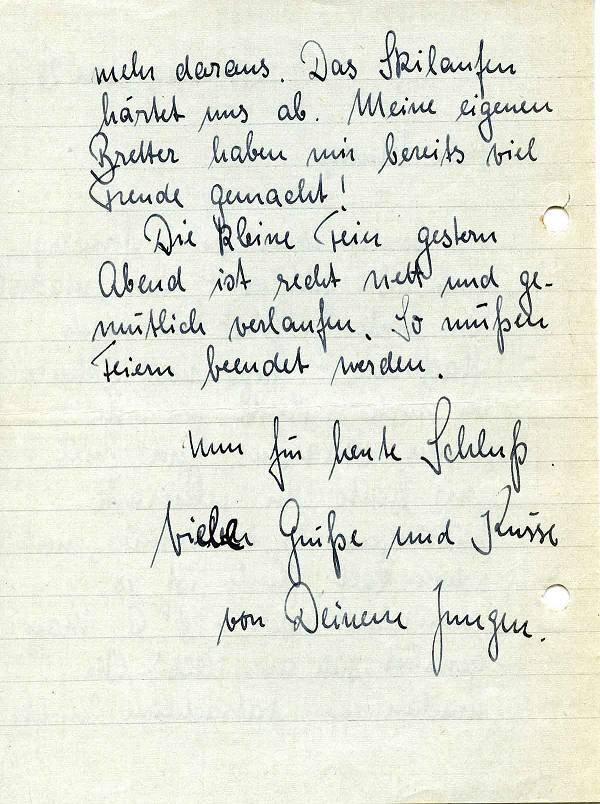 mehr daraus. Das Skilaufen
härtet uns ab. Meine eigenen
Bretter haben mir bereits viel
Freude gemacht!
Die kleine Feier gestern
Abend ist recht nett und ge-
mütlich verlaufen. So müßen
Feiern beendet werden.
Nun für heute Schluß
viele Grüße und Küsse
von Deinem Jungen.